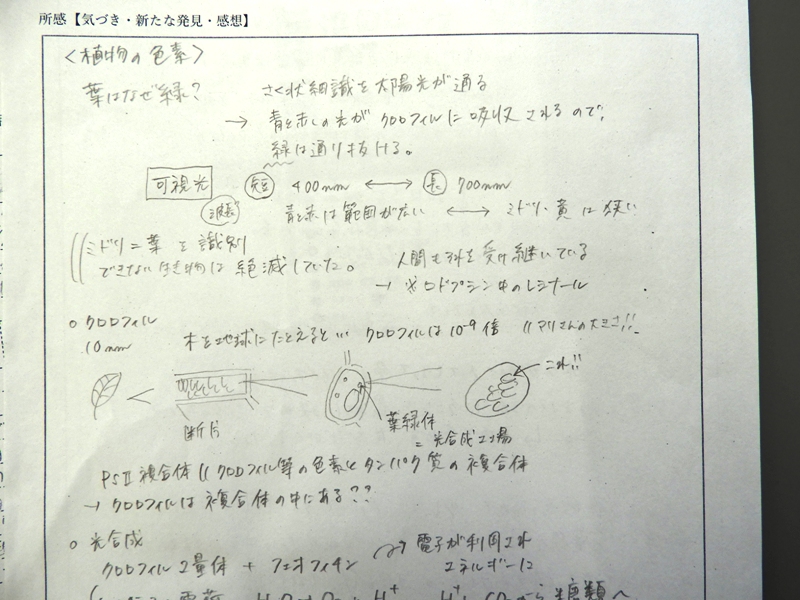 所感【気づき・新たな発見・感想】
<植物の色素>
葉はなぜ緑？ さく状細識を太陽光が通る
→ 青と赤の光がクロロフィルに吸収されるので、
緑は通り抜ける。
可視光 短 400mm ←→ 長 700mm
波長 青と赤は範囲が広い ←→ ミドリ・黄は狭い
ミドリ=葉を識別 人間も
できない生き物は絶滅していた。 受け継いている
→ ※ロドプシン中のレシナール
○クロロフィル
10mm 木を地球にたとえると… クロロフィルは10-9倍 〃アリさんの大きさ!!
これ!!
断片 葉緑体
= 光合成工場
PSⅡ複合体〃クロロフィル等の色素とタンパク質の複合体
→ クロロフィルは複合体の中にある??
○光合成 電子が利用され
クロロフィル2量体 + フェオフィチン エネルギーに
電荷 H+ H+ 糖類へ